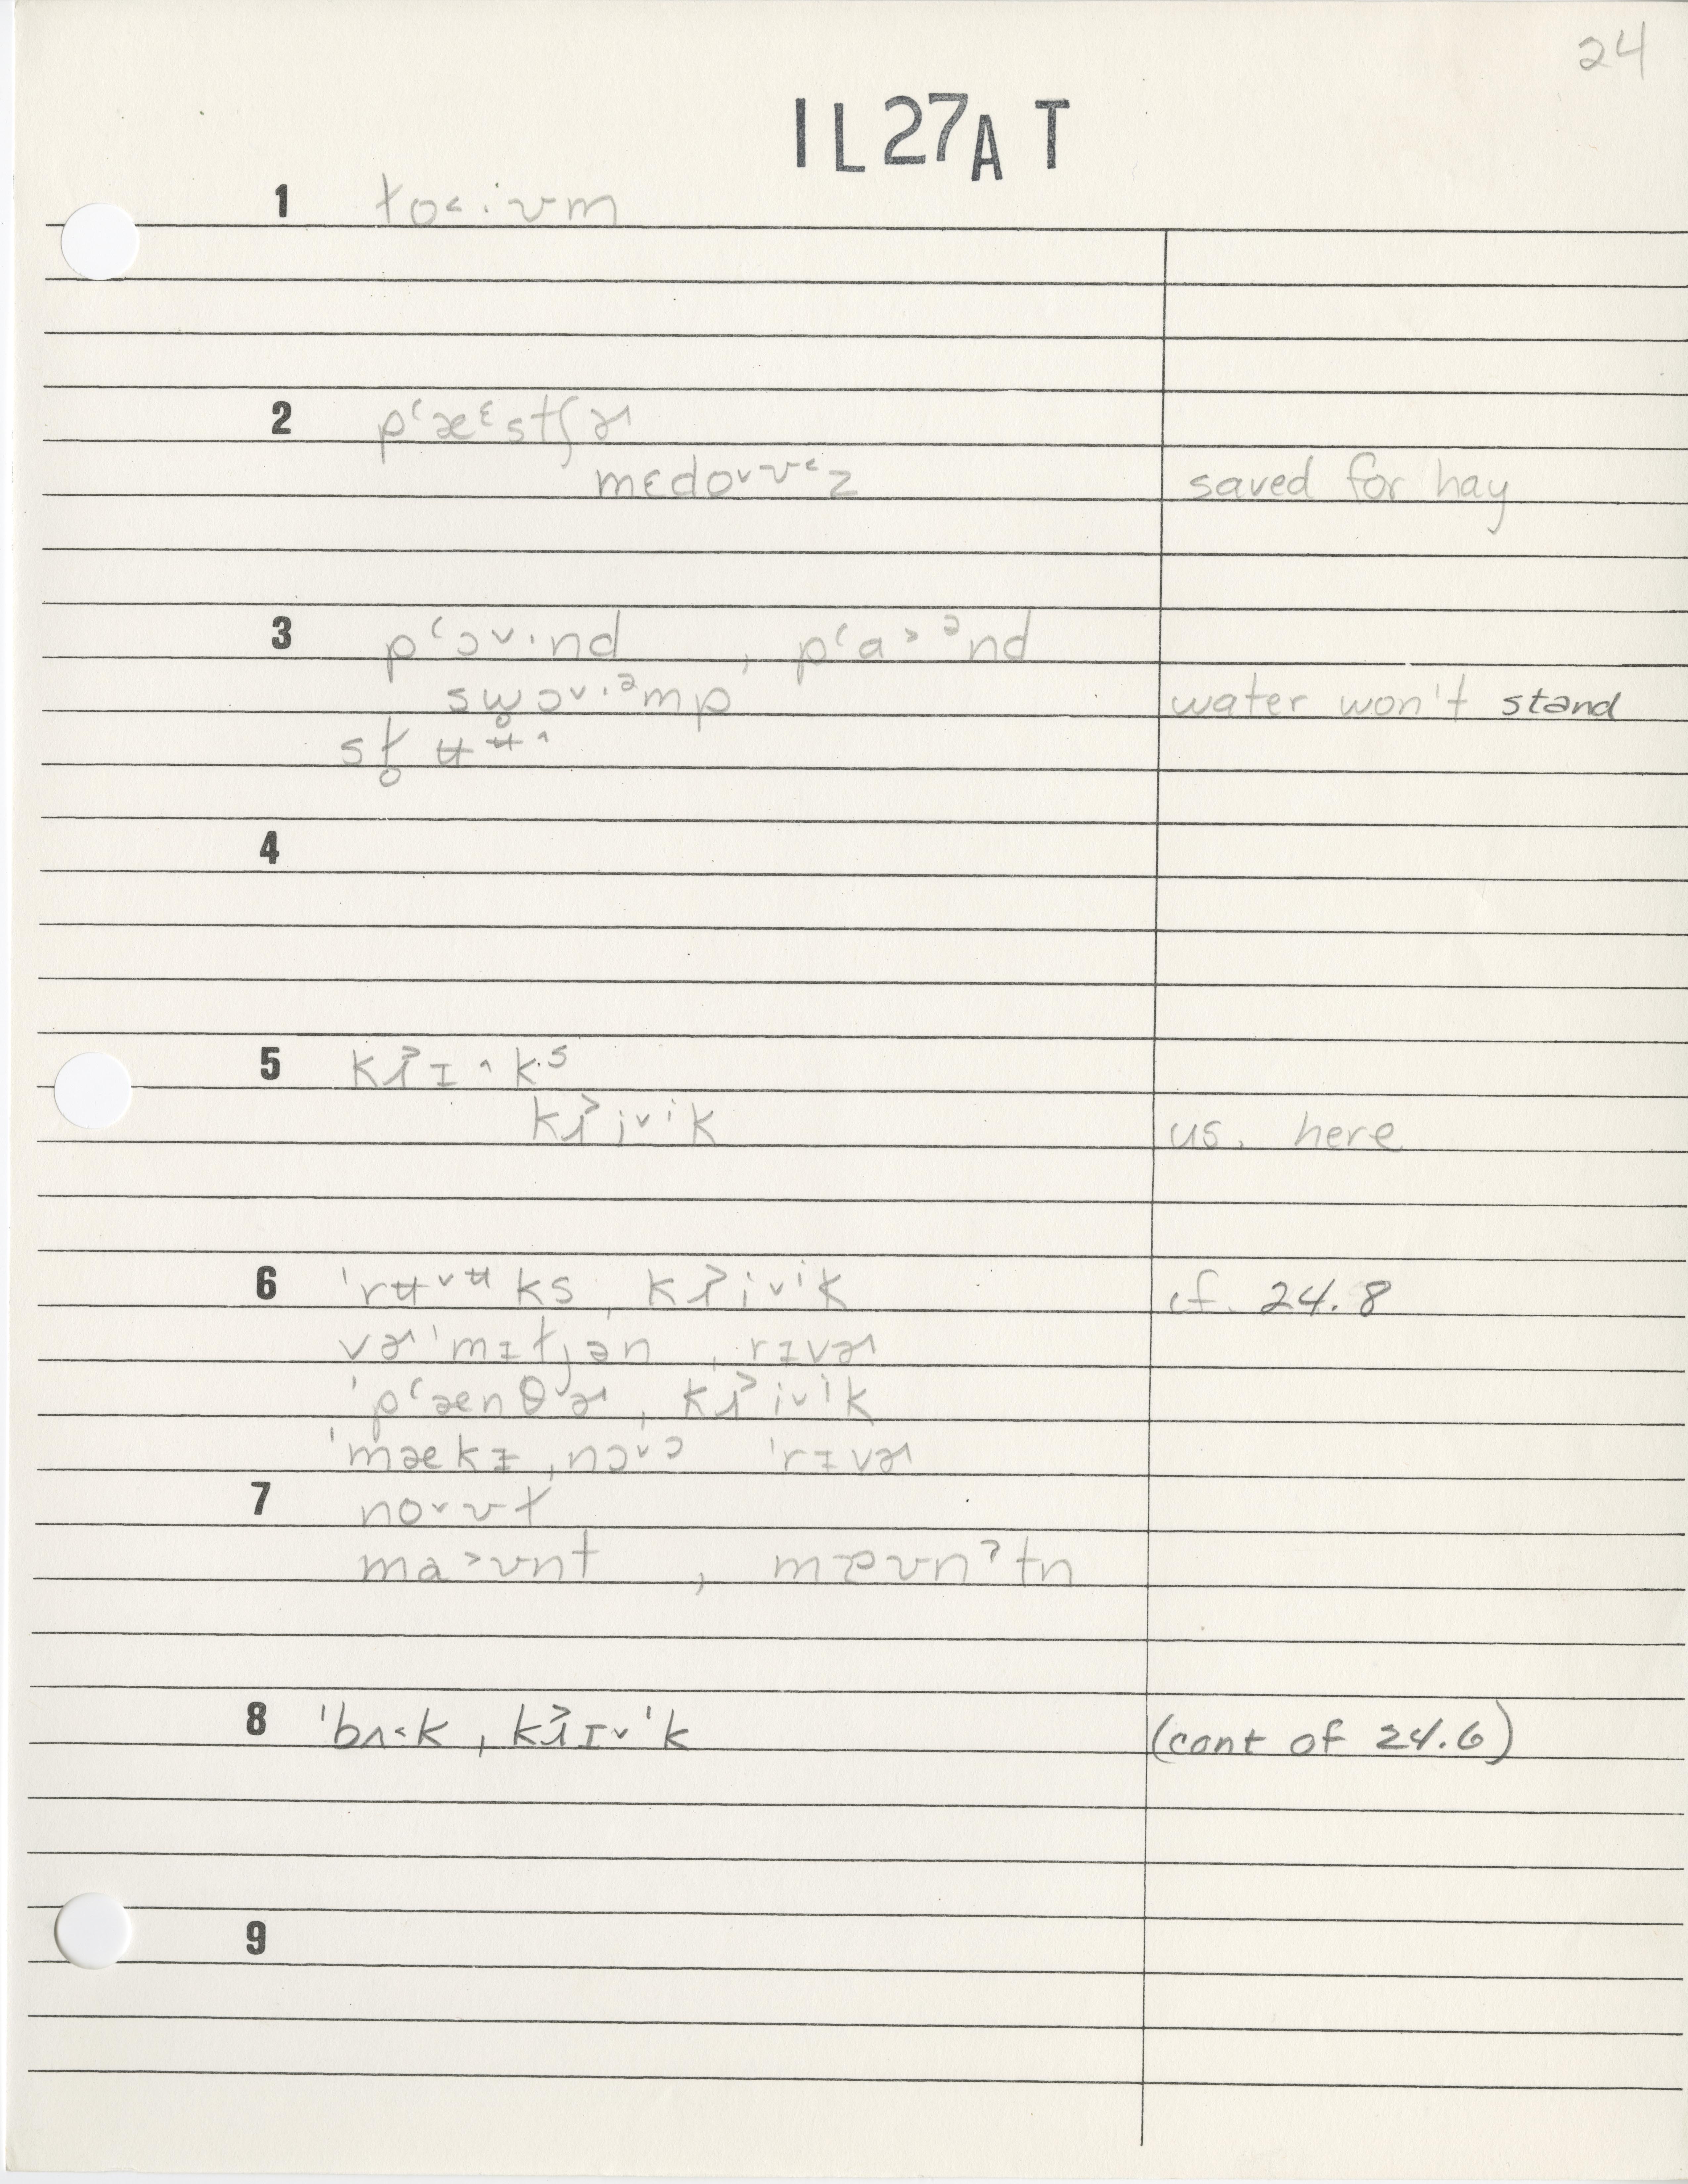 24
IL27A T
1 ƚo˂·ʊm
2 pʻæᵋstʃɚ
mɛdo˅ʊ˞z saved for hay
3 pʻɔ˅·nd , pʻa˃ᵊnd
sw̥ɔ˅·ᵊmp water won't stand
st̥ʉʉ^
4
5 kɹ̥ɪ^k·s
kɹ̥i˅ⁱk us. here
6 ˈrʉ˅ᶶks, kɹ̥i˅ⁱk cf. 24.8
vɚˈmɪƚjən , rɪvɚ
ˈpʻænθɚ, kɹ̥i˅ⁱk
ˈmækɪ, nɔ˅ᵓ ˈrɪvɚ
7 no˅ʊƚ
ma˃ʊnt , mæʊnˀtn
8 ˈbʌ˂k, kɹ̥ɪ˅ˈk (cont of 24.6)
9